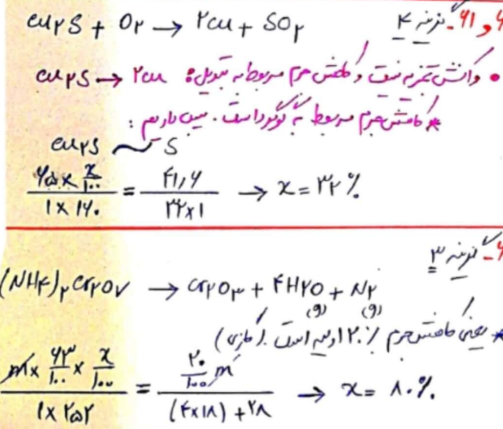 cu۲S + O۲ → ۲cu + SO۲ ۶۱- گزینه ۴
• واکنش تجزیه نیست و کاهش جرم مربوط به تبدیل: cu۲S → ۲cu
* کاهش جرم مربوط به گوگرد است. پس داریم:
cu۲S ~ S
(۶۵ × x/۱۰۰)/(۱ × ۱۶۰) = ۴۱,۶/(۳۲×۱) → x = ۳۲٪
گزینه ۳
(NH۴)۲cr۲O۷ → cr۲O۳ + ۴H۲O + N۲
(g) (g)
* یعنی کاهش جرم ۲۰٪ اولیه است. (گازی)
(m × ۶۳/۱۰۰ × x/۱۰۰)/(۱ × ۲۵۲) = (۲۰/۱۰۰ m)/((۴×۱۸) + ۲۸) → x = ۸۰٪